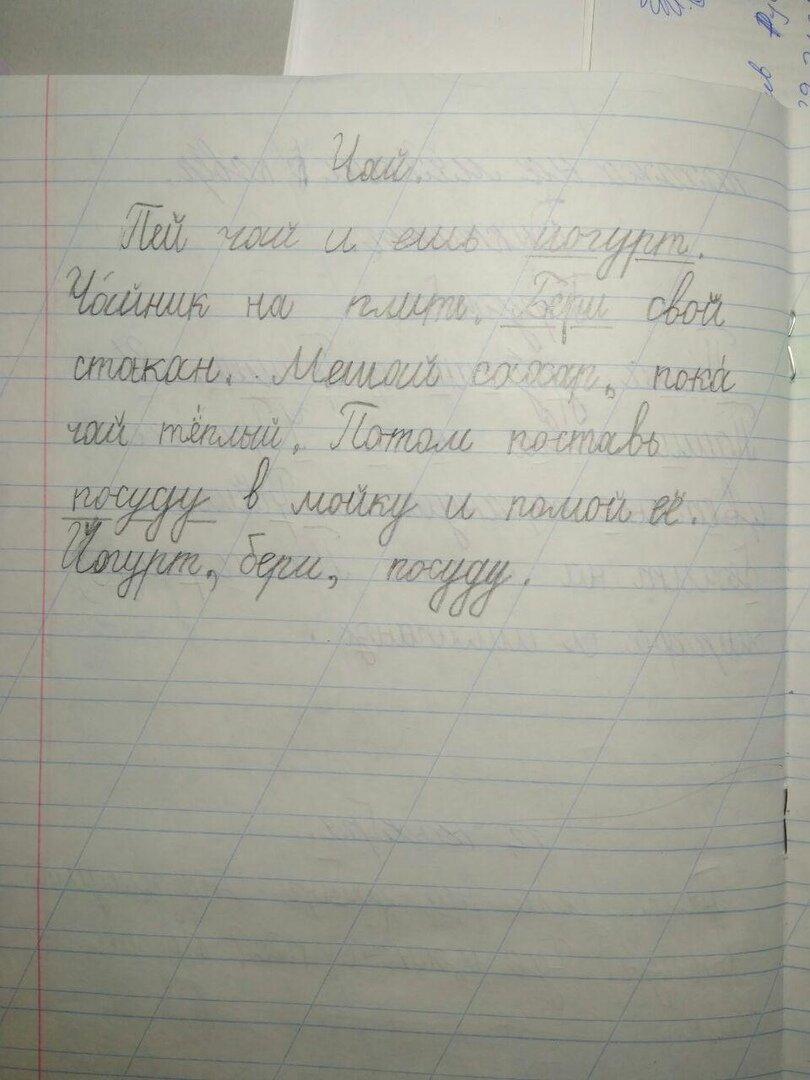 Чай.
Пей чай и ешь йогурт.
Ча́йник на плите. Бери свой
стакан. Мешай сахар, пока́
чай тёплый. Потом поставь
посуду в мойку и помой её.
Йогурт, бери, посуду.